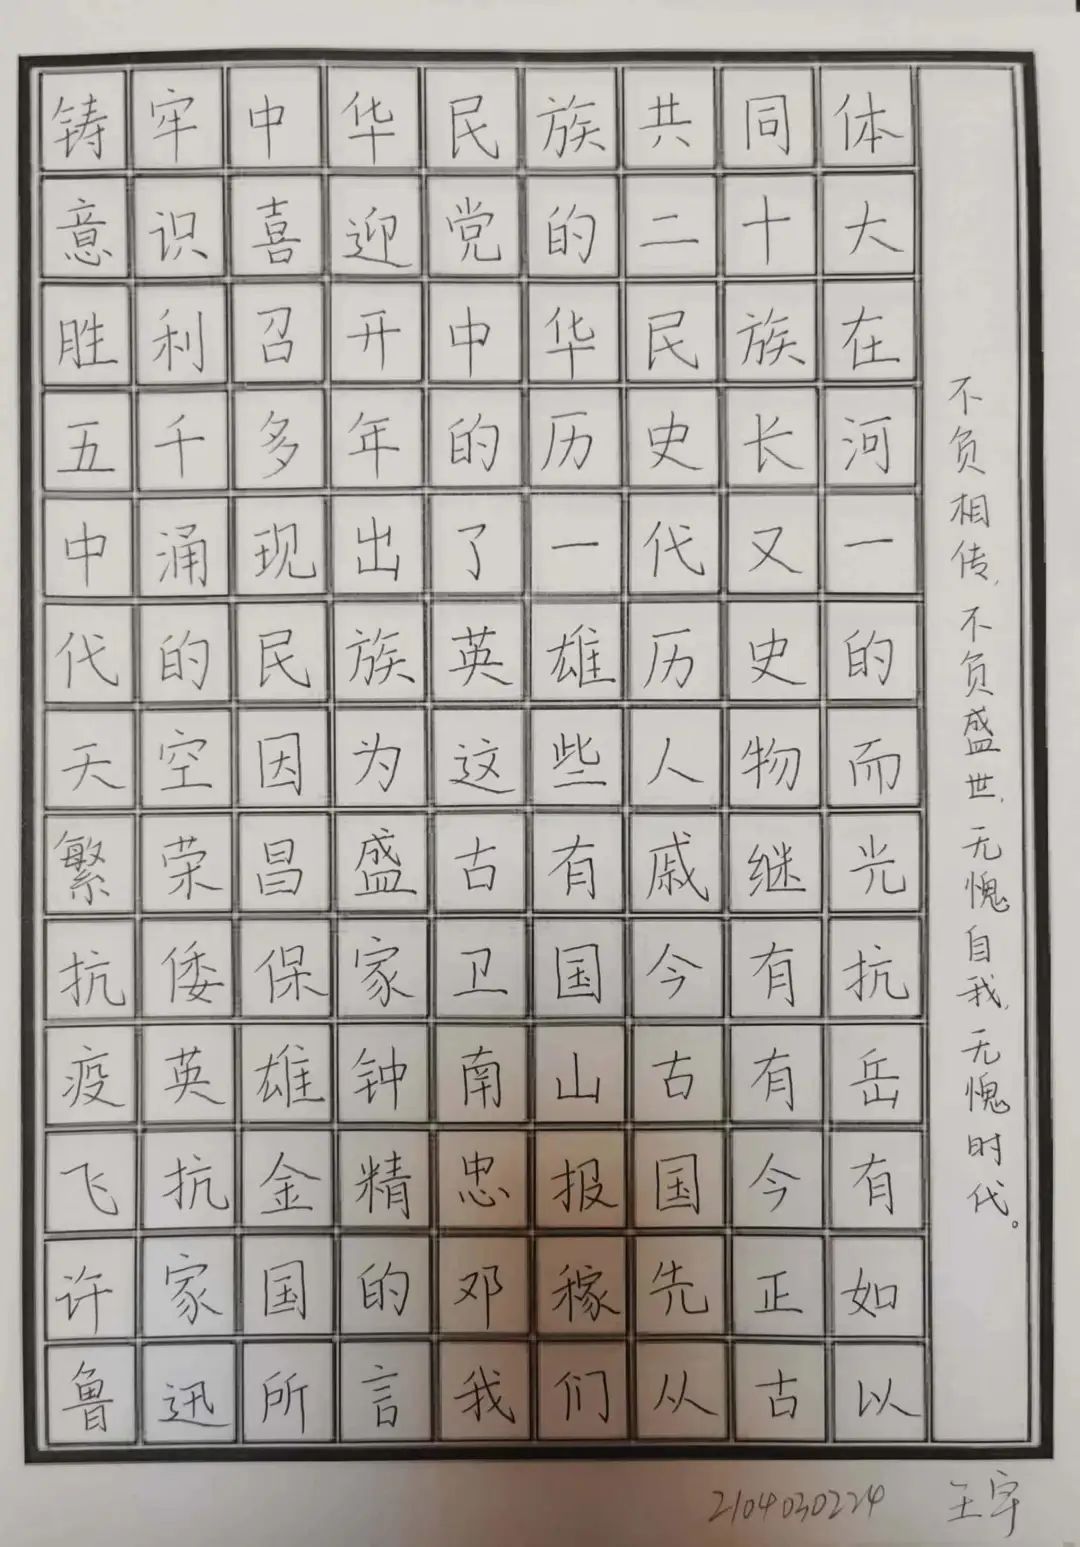 铸牢中华民族共同体
意识喜迎党的二十大
胜利召开中华民族在
五千多年的历史长河
中涌现出了一代又一
代的民族英雄历史的
天空因为这些人物而
繁荣昌盛古有戚继光
抗倭保家卫国今有抗
疫英雄钟南山古有岳
飞抗金精忠报国今有
许家国的邓稼先正如
鲁迅所言我们从古以
不负相传,不负盛世,无愧自我,无愧时代。
2104030224 王宇